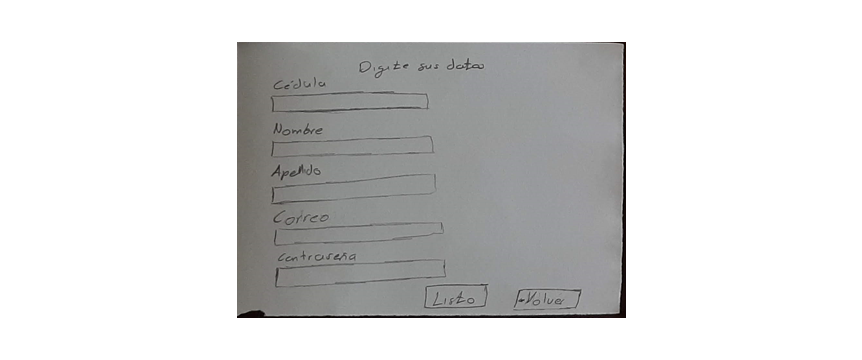 Digite sus datos
Cédula
Nombre
Apellido
Correo
Contraseña
Listo
Volver